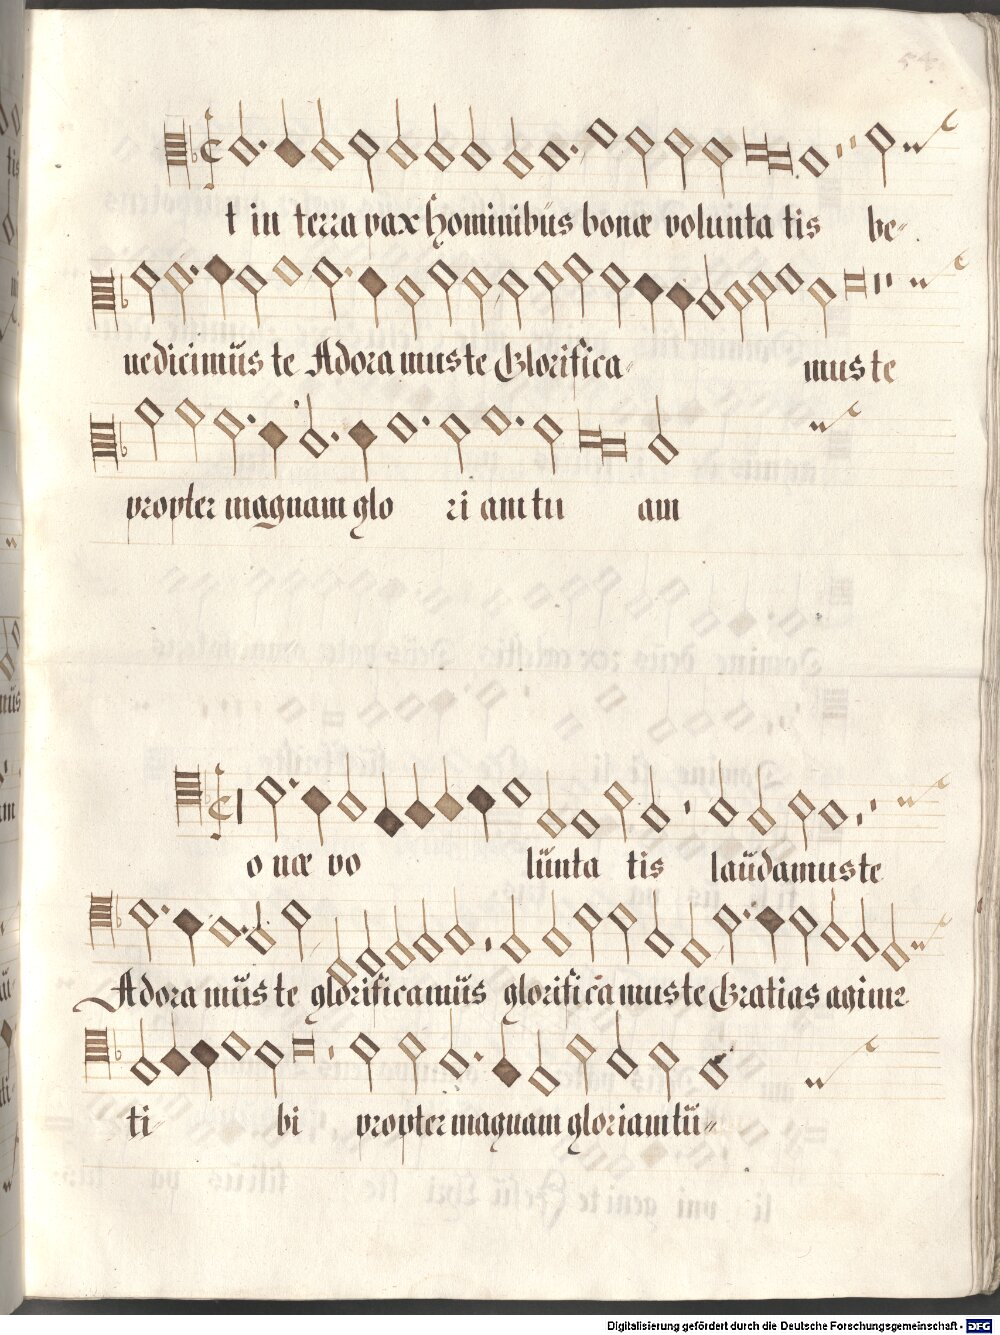 54
t in terra pax hominibus bonæ volunta tis be-
nedicimus te Adora mus te Glorifica- mus te
propter magnam glo ri am tu am
o næ vo lunta tis laudamus te
Adora mus te glorificamus glorificamus te Gratias agimr
ti- bi propter magnam gloriam tu-
Digitalisierung gefördert durch die Deutsche Forschungsgemeinschaft - DFG